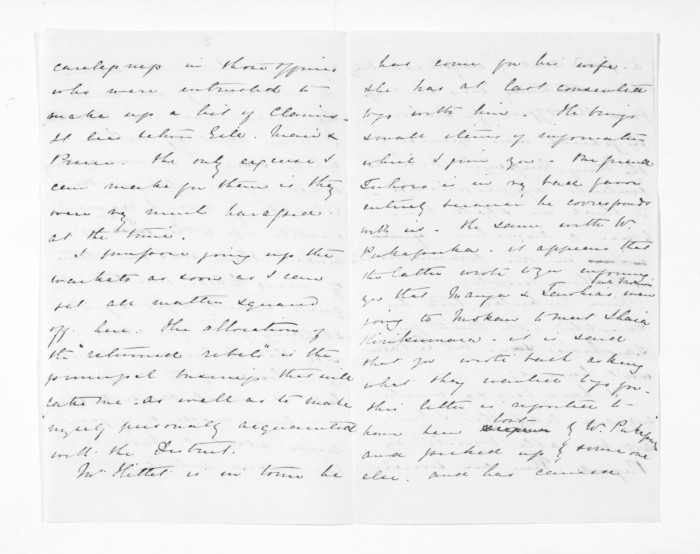 carelessness in those officers
who were intrusted to
make up a list of Claims.
It lies between Gill. Mair &
Pierce. The only excuse I
can make for them is they
were very much harassed
at the time.
I purpose going up the
Waikato as soon as I can
get all matters squared
off here. The allocation of
the "returned rebels" is the
principal business that will
take me. as well as to make
myself personally acquainted
with the District.
Mr Hettit is in town he
has come for his wife.
She has at last consented
to go with him. He brings
small items of information
which I give you. Our friend
is in very bad favor
entirely because he corresponds
with us. The same with W.
Pukapuka. it appears that
the latter wrote to you informing
you that Manga & Tawhiao were
going to Mokau to meet Ihaia
Kirikumara. it is said
that you wrote back asking
what they wanted to go for.
this letter is reported to
have been lost by W. Pukapuka
and picked up by some one
else. and has caused